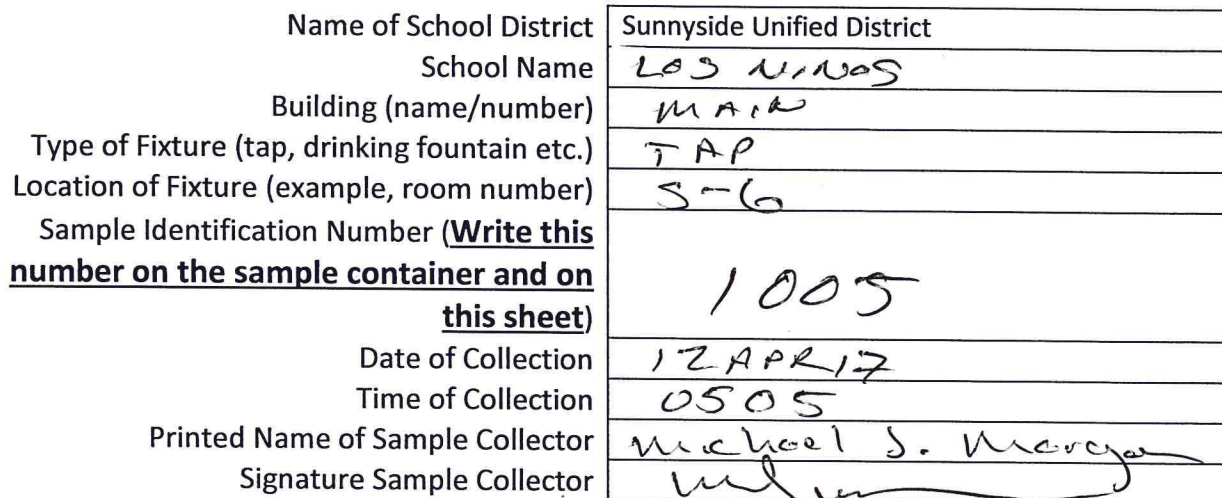 Name of School District Sunnyside Unified District
School Name LOS NINOS
Building (name/number) MAIN
Type of Fixture (tap, drinking fountain etc.) TAP
Location of Fixture (example, room number) S-6
Sample Identification Number (Write this
number on the sample container and on 1005
this sheet)
Date of Collection 12APR17
Time of Collection 0505
Printed Name of Sample Collector Michael S. Morgan
Signature Sample Collector